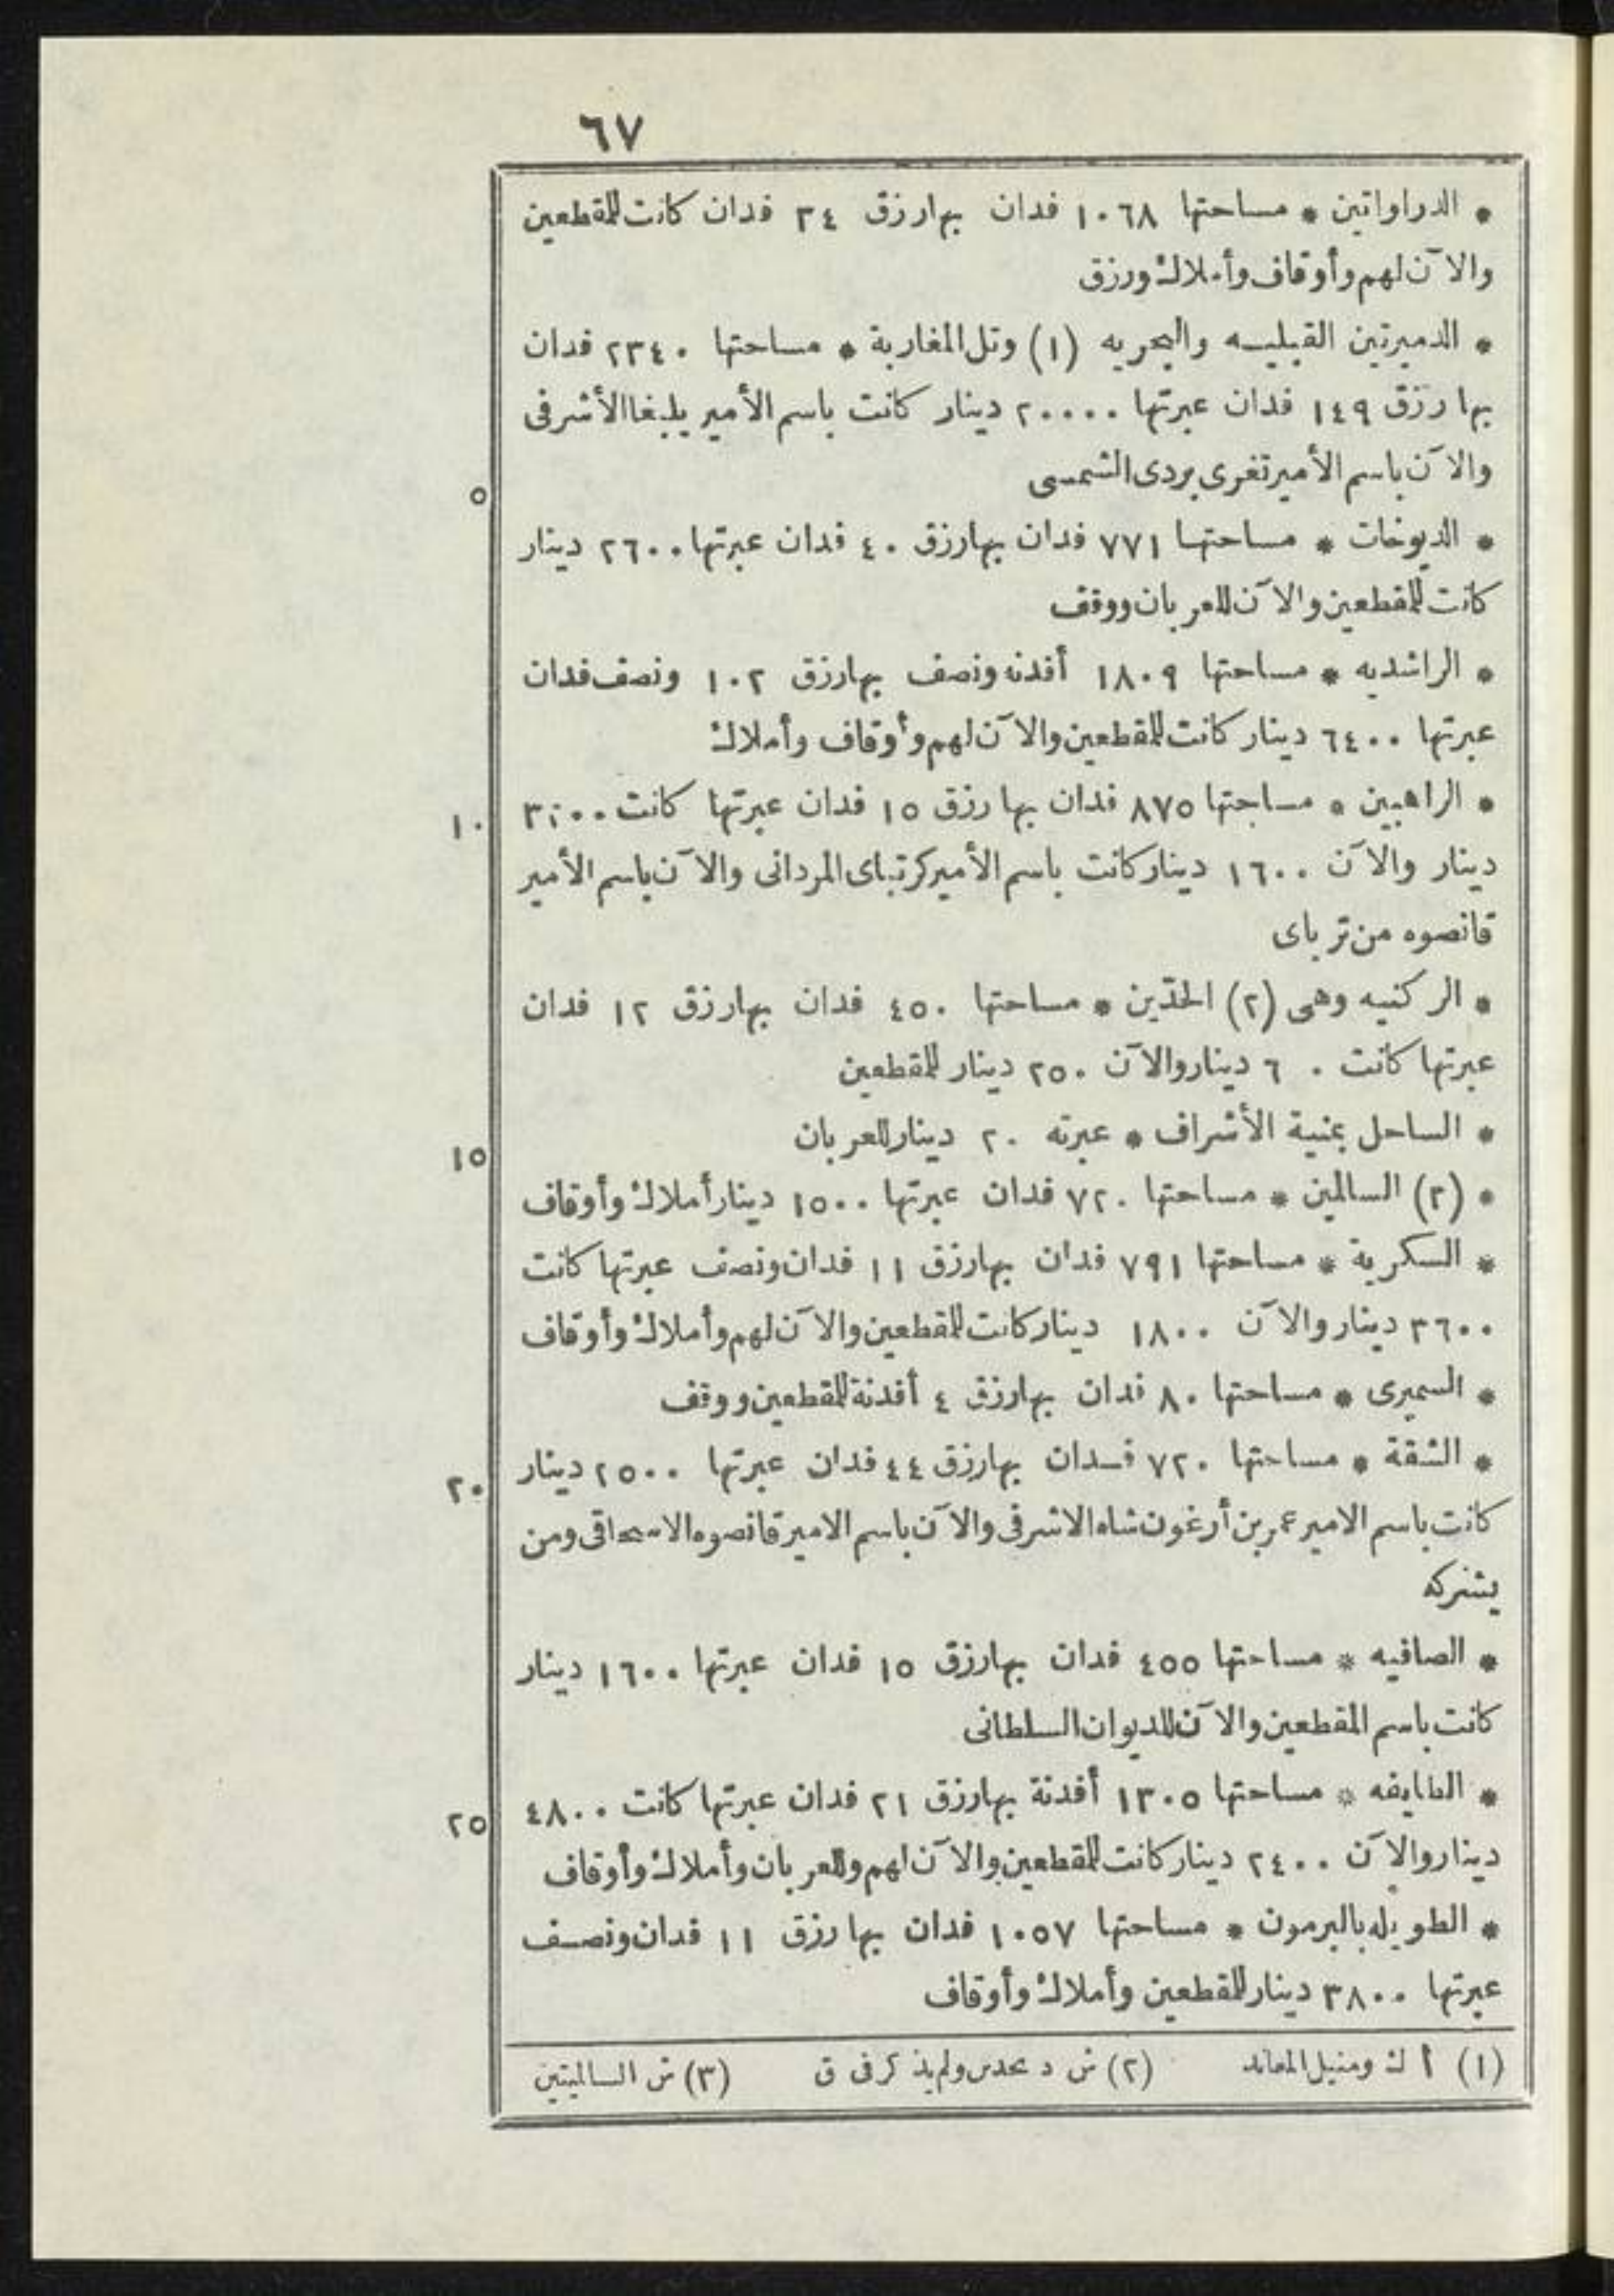 ٦٧
* الدراواتين * مساحتها ١٠٦٨ فدان بها رزق ٣٤ فدان كانت للمقطعين
والآن لهم وأوقاف وأملاك ورزق
* الدميرتين القبليه والبحريه (١) وتل المغاربة * مساحتها ٢٣٤٠ فدان
بها رزق ١٤٩ فدان عبرتها ٢٠٠٠٠ دينار كانت باسم الأمير يلبغا الأشرفى
والآن باسم الأمير تغرى بردى الشمسى
٥
* الديوخات * مساحتها ٧٧١ فدان بها رزق ٤٠ فدان عبرتها ٢٦٠٠ دينار
كانت للمقطعين والآن للعربان ووقف
* الراشديه * مساحتها ١٨٠٩ أفدنه ونصف بها رزق ١٠٢ ونصف فدان
عبرتها ٦٤٠٠ دينار كانت للمقطعين والآن لهم وأوقاف وأملاك
* الراهبين * مساحتها ٨٧٥ فدان بها رزق ١٥ فدان عبرتها كانت
١٠
دينار والآن ١٦٠٠ دينار كانت باسم الأمير كرتباى المردانى والآن باسم الأمير
قانصوه من تر باى
* الركنيه وهى (٢) الحدّين * مساحتها ٤٥٠ فدان بها رزق ١٢ فدان
عبرتها كانت ٦٠ دينار والآن ٢٥٠ دينار للمقطعين
* الساحل بمنية الأشراف * عبرته ٢٠ دينار للعربان
١٥
* (٣) السالمين * مساحتها ٧٢٠ فدان عبرتها ١٥٠٠ دينار أملاك وأوقاف
* السكرية * مساحتها ٧٩١ فدان بها رزق ١١ فدان ونصف عبرتها كانت
٣٦٠٠ دينار والآن ١٨٠٠ دينار كانت للمقطعين والآن لهم وأملاك وأوقاف
* السميرى * مساحتها ٨٠ فدان بها رزق ٤ أفدنة للمقطعين ووقف
* الشقة * مساحتها ٧٢٠ فدان بها رزق ٤٤ فدان عبرتها ٢٥٠٠ دينار
٢٠
كانت باسم الامير عمر بن أرغون شاه الاشرفى والآن باسم الامير قانصوه الاسحاقى ومن
يشركه
* الصافيه * مساحتها ٤٥٥ فدان بها رزق ١٥ فدان عبرتها ١٦٠٠ دينار
كانت باسم المقطعين والآن للديوان السلطانى
* الطايفه * مساحتها ١٣٠٥ أفدنة بها رزق ٢١ فدان عبرتها كانت ٤٨٠٠
٢٥
دينار والآن ٢٤٠٠ دينار كانت للمقطعين والآن لهم وللعربان وأملاك وأوقاف
* الطويله بالبرمون * مساحتها ١٠٥٧ فدان بها رزق ١١ فدان ونصف
عبرتها ٣٨٠٠ دينار للمقطعين وأملاك وأوقاف
(١) أ ك ومنيل المعاند (٢) ش د ولم يذكر فى ق (٣) ش السالميتين